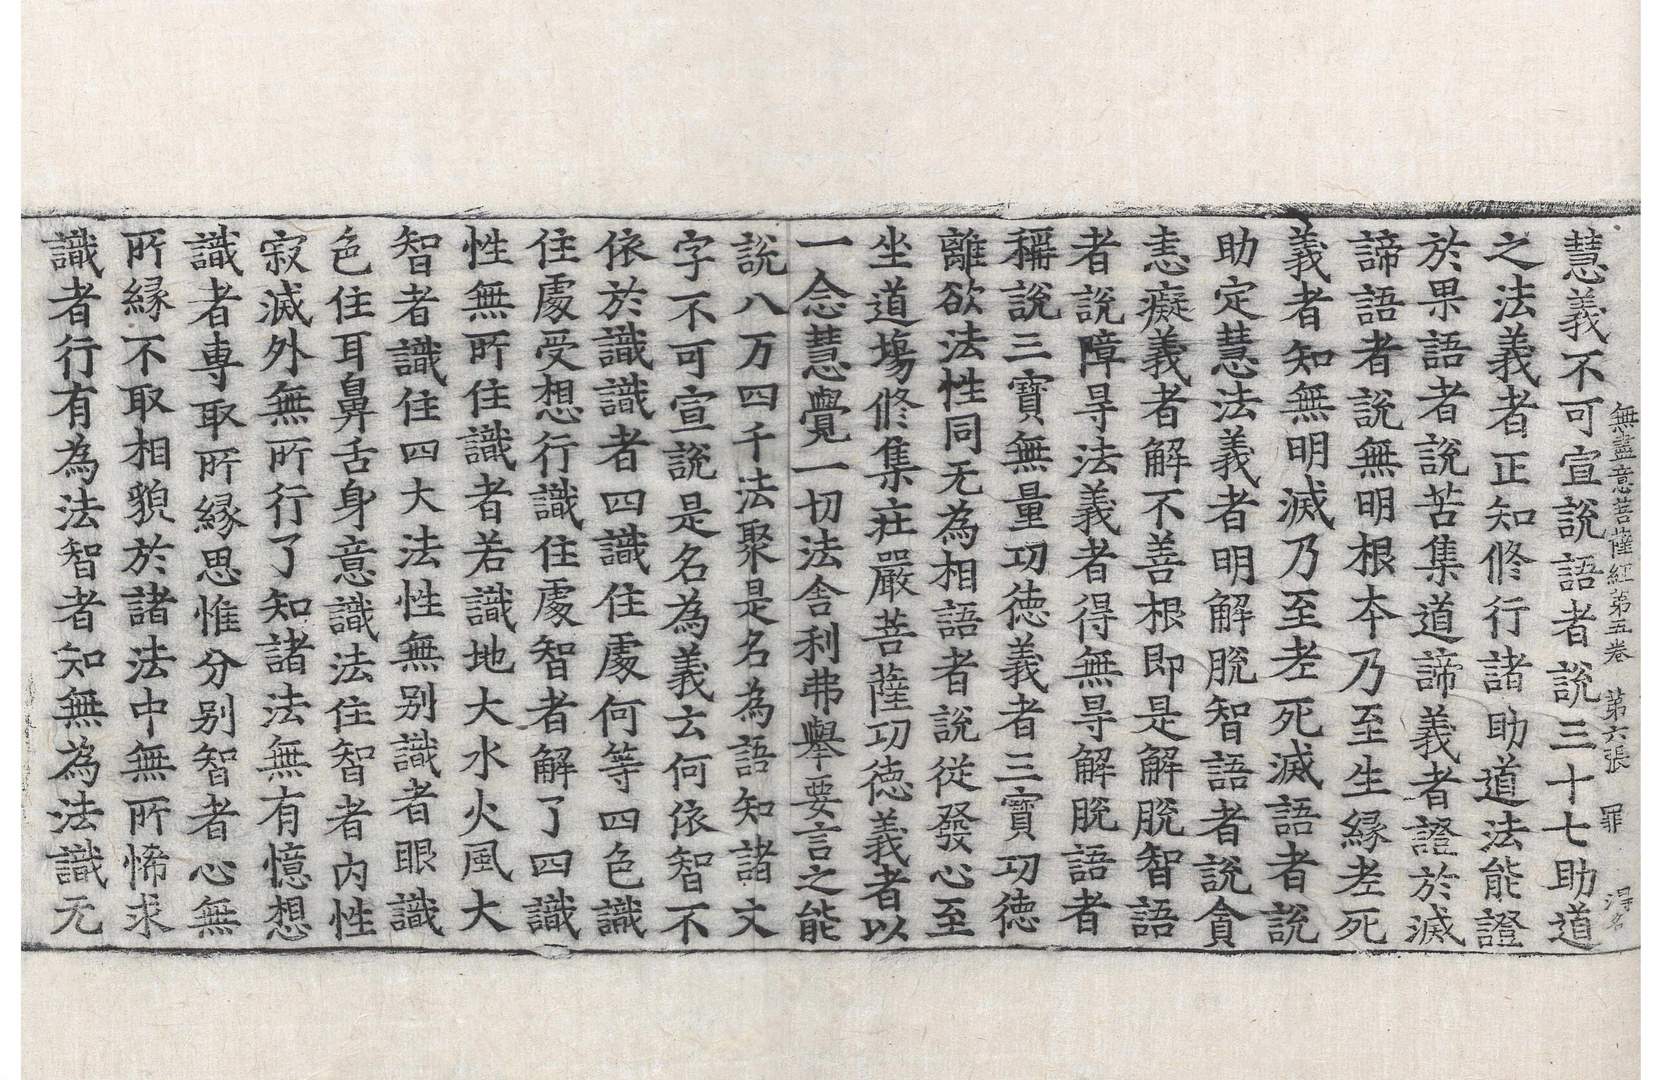 無盡意菩薩経第五卷 第六張 罪
慧義不可宣說語者說三十七助道
之法義者正知脩行諸助道法能證
於果語者說苦集道諦義者證於滅
諦語者說無明根本乃至生縁老死
義者知無明滅乃至老死滅語者說
助定慧法義者明解脫智語者說貪
恚癡義者解不善根即是解脫智語
者說障㝵法義者得無㝵解脫語者
稱說三寶無量功徳義者三寶功徳
離欲法性同无為相語者說從發心至
坐道塲脩集莊嚴菩薩功徳義者以
一念慧覺一切法舍利弗舉要言之能
說八万四千法聚是名為語知諸文
字不可宣說是名為義云何依智不
依於識識者四識住處何等四色識
住處受想行識住處智者解了四識
性無所住識者若識地大水火風大
智者識住四大法性無别識者眼識
色住耳鼻舌身意識法住智者內性
寂滅外無所行了知諸法無有憶想
識者専取所縁思惟分别智者心無
所縁不取相貌於諸法中無所悕求
識者行有為法智者知無為法識无